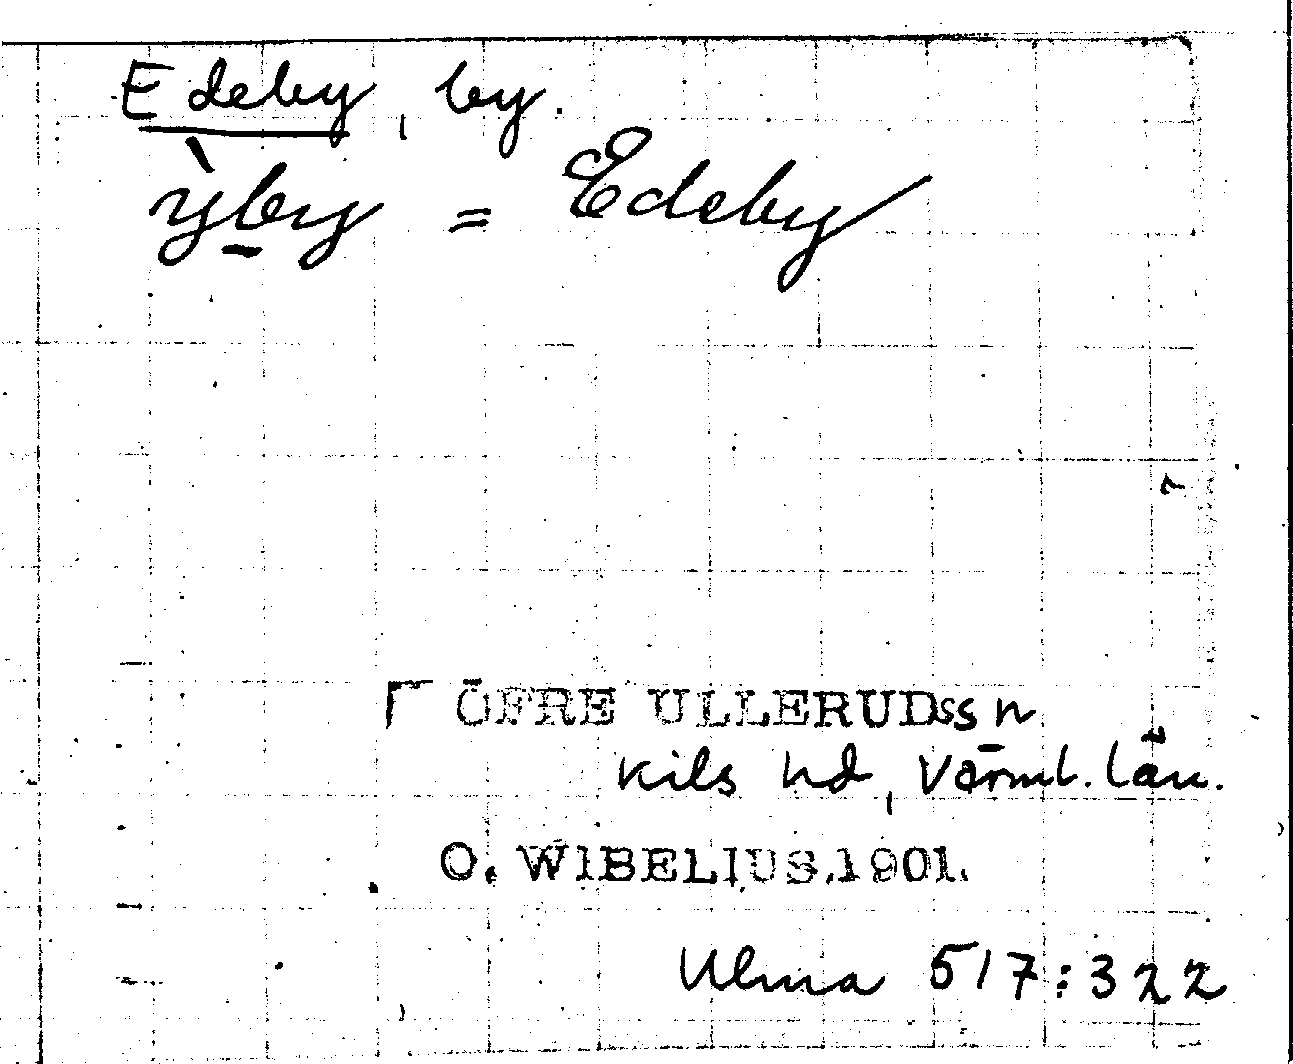 Edeby, by.
ỳby = Edeby
ÖFRE ULLERUDss n
Kils hd, Värml. län.
O. WIBELIUS.1901.
Ulma 517:322